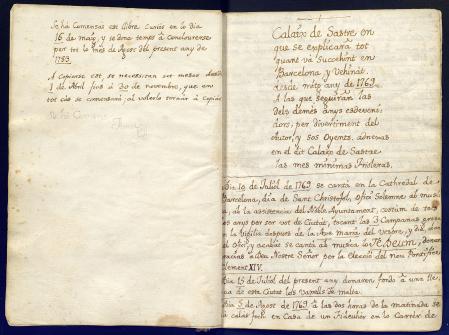 Se ha Comensat est llibre Lunes en lo dia
16 de maig, y se dona temps à Conclourerse
per tot lo mes de Agost del present any de
1793.
A Copiarse est, se necesitan set mesos desde
1 de Abril fins à 30 de novembre, que en
tot cas se comensarà, al volerlo tornar à Copiar
1
Calaix de Sastre en
que se explicarà tot
quant va succehint en
Barcelona y Vehinat
desde mitg any de 1769.
A las que seguiran las
dels demés anys esdeveni-
dors, per divertiment del
Autor, y sos Oyents,
en est dit Calaix de Sastre
las mes minimas frioleras.
Dia 10 de Juliol de 1769 se cantà en la Cathedral de
Barcelona, dia de Sant Christofol, Ofici Solemne ab musi-
ca, ab la assistencia del Noble Ajuntament, costum de tots
los anys per ser vot de Ciutat, tocant las 3 Campanas grosas
en la Vigilia despues de la Ave maria del vespre, y dit dia
al Ofici, y acabat se cantà ab musica lo Te Deum, donant
gracias à Deu Nostre Señor per la Elecció del nou Pontifice
Clement XIV.
Dia 15 de Juliol del present any donaren fondo à una lle-
gua de esta Ciutat los vaxells de malta.
Dia 5 de Agost de 1769 à las dos horas de la matinada se
calà foch en Casa de un Fideuher en lo Carrer de